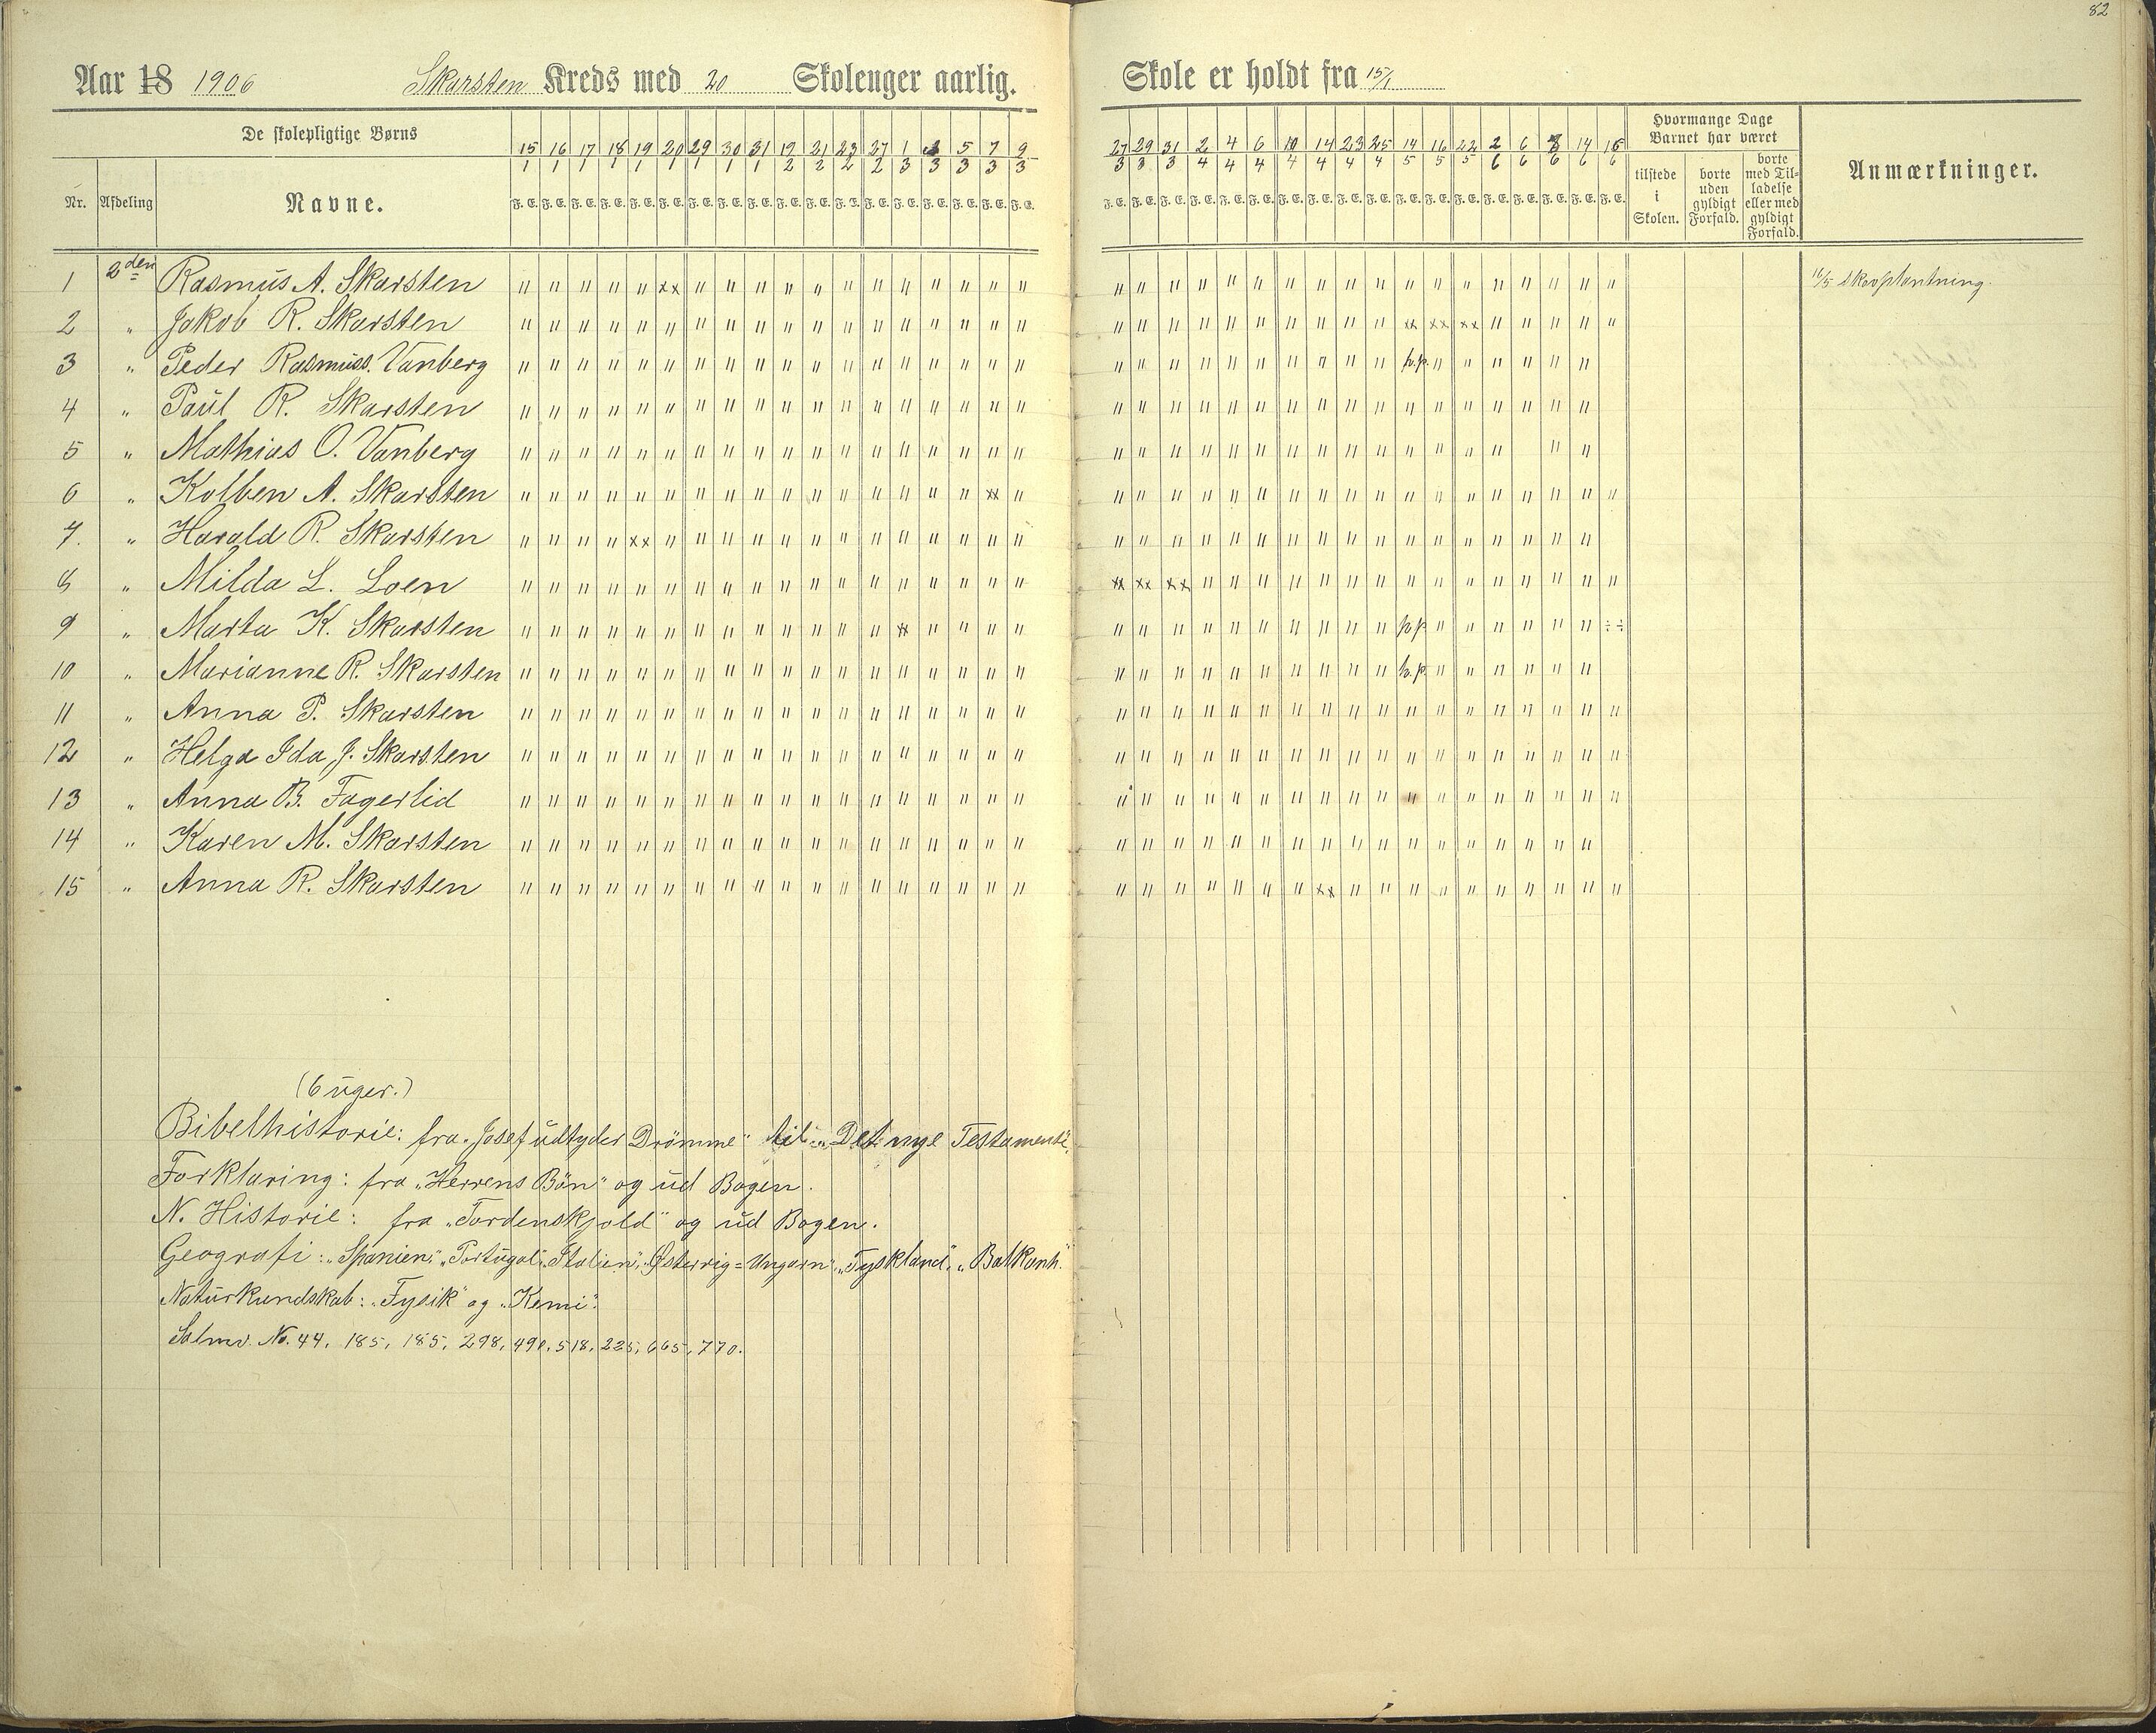 82
Aar 18 1906 Skarsten Kreds med 20 Skolenger aarlig. Skole er holdt fra 15/1
De skolepligtige Børns
Nr. Afdeling Navne.
15/1 16/1 17/1 18/1 19/1 20/1 29/1 30/1 31/1 19/2 21/2 23/2 27/2 1/3 3/3 5/3 7/3 9/3
F. E. F. E. F. E. F. E. F. E. F. E. F. E. F. E. F. E. F. E. F. E. F. E. F. E. F. E. F. E. F. E. F. E. F. E.
27/3 29/3 31/3 2/4 4/4 6/4 10/4 14/4 23/4 25/4 14/5 16/5 22/5 2/6 6/6 8/6 14/6 15/6
F. E. F. E. F. E. F. E. F. E. F. E. F. E. F. E. F. E. F. E. F. E. F. E. F. E. F. E. F. E. F. E. F. E. F. E.
Hvormange Dage
Barnet har været
tilstede
i
Skolen.
borte
uden
gyldigt
Forfald.
borte
med Til-
ladelse
eller med
gyldigt
Forfald.
Anmærkninger.
1 2den Rasmus A. Skarsten 16/5 skovplantning.
2 " Jakob R. Skarsten
3 " Peder Rasmuss. Vanberg
4 " Paul R. Skarsten
5 " Mathias O. Vanberg
6 " Kolben A. Skarsten
7. " Harald R. Skarsten
8 " Milda L. Loen
9 " Marta K. Skarsten
10 " Marianne R. Skarsten
11 " Anna P. Skarsten
12 " Helga Ida J. Skarsten
13 " Anna B. Fagerlid
14 " Karen M. Skarsten
15 " Anna R. Skarsten
(6 uger.)
Bibelhistorie: fra „Josef udtyder Drömme" til „Det nye Testamente".
Forklaring: fra „Herrens Bön" og ud Bogen.
N. Historie: fra „Tordenskjold" og ud Bogen.
Geografi: „Spanien", „Portugal", „Italien", „Østerrig=Ungarn", „Tyskland", „Balkanh."
Naturkundskab: „Fysik" og „Kemi".
Salmer No. 44, 185, 185, 298, 490, 518, 225, 665, 770.